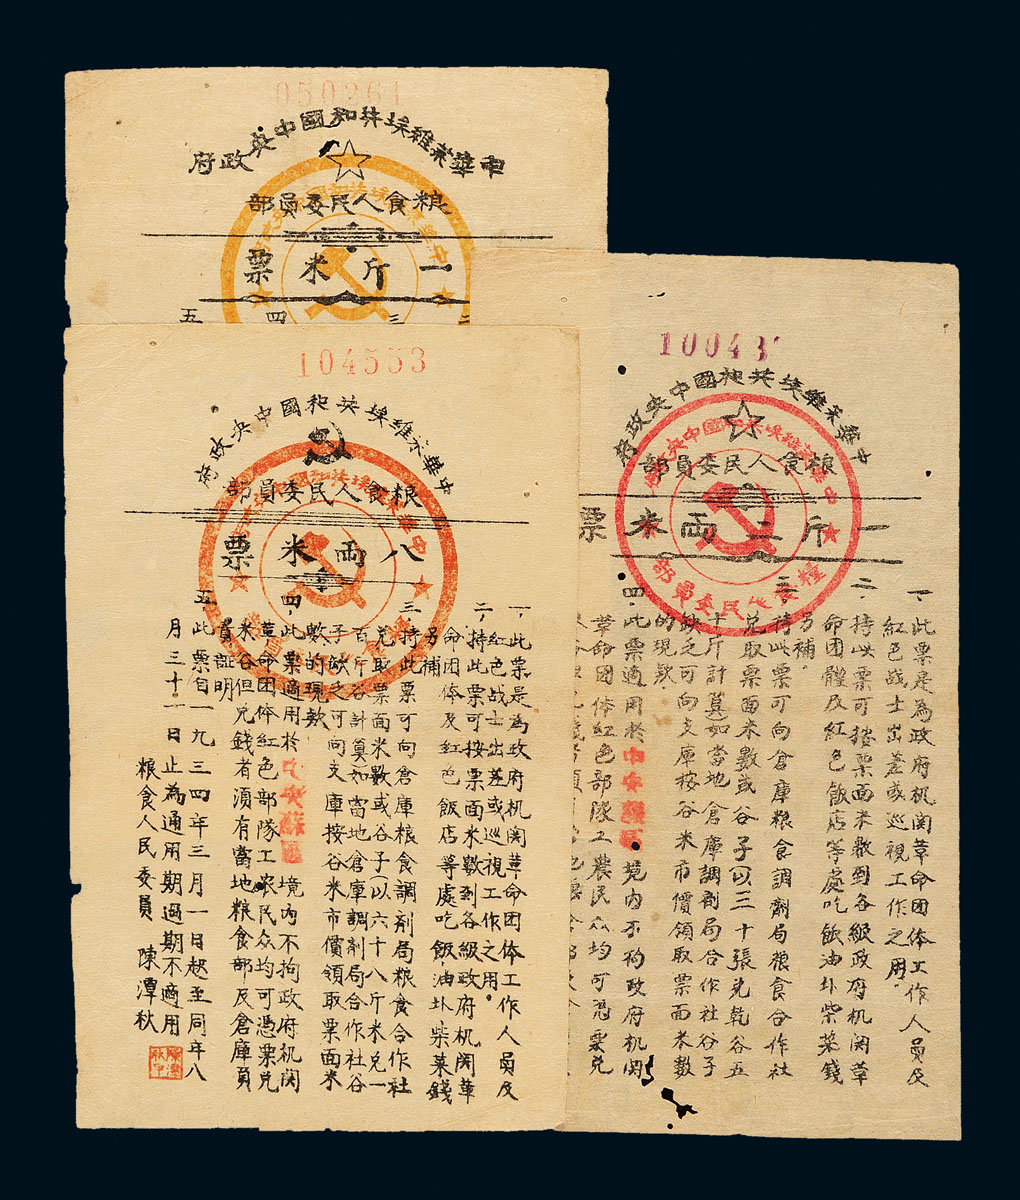 050261
中華苏維埃共和國中央政府
粮食人民委員部
一斤米票
三
四
五
104553
中華苏維埃共和國中央政府
粮食人民委員部
八兩米票
一、此票是為政府机関革命団体工作人員及
紅色战士出差或巡視工作之用。
二、持此票可按票面米數到各級政府机関革
命団体及紅色飯店等處吃飯油圤柴菜錢
另補
三、持此票可向倉庫粮食調剂局粮食合作社
兑取票面米數或谷子以六十八斤米兑一
百斤谷計算如當地倉庫調剂局合作社谷
子缺乏可向支庫按谷米市價領取票面米
數的現款
四、此票適用於中央蘇區境內不拘政府机関
革命団体紅色部隊工农民众均可憑票兑
米谷但兑錢者須有當地粮食部及倉庫負
責証明
五、此票自一九三四年三月一日起至同年八
月三十一日止為通用期過期不適用
粮食人民委員 陳潭秋
10043
中華苏維埃共和國中央政府
粮食人民委員部
一斤二兩米票
糧食人民委員部
一、此票是為政府机関革命团体工作人員及
紅色战士出差或巡視工作之用.
二、持此票可按票面米數到各級政府机関革
命团體及紅色飯店等處吃飲油圤柴菜錢
另補.
三、持此票可向倉庫粮食調剂局粮食合作社
兑取票面米數或谷子以三十張兑乾谷五
十斤計算如當地倉庫調剂局合作社谷子
缺乏可向支庫按谷米市價領取票面米數
的現款.
四、此票適用於中央蘇區境内不拘政府机関
革命团体紅色部隊工農民众均可憑票兑